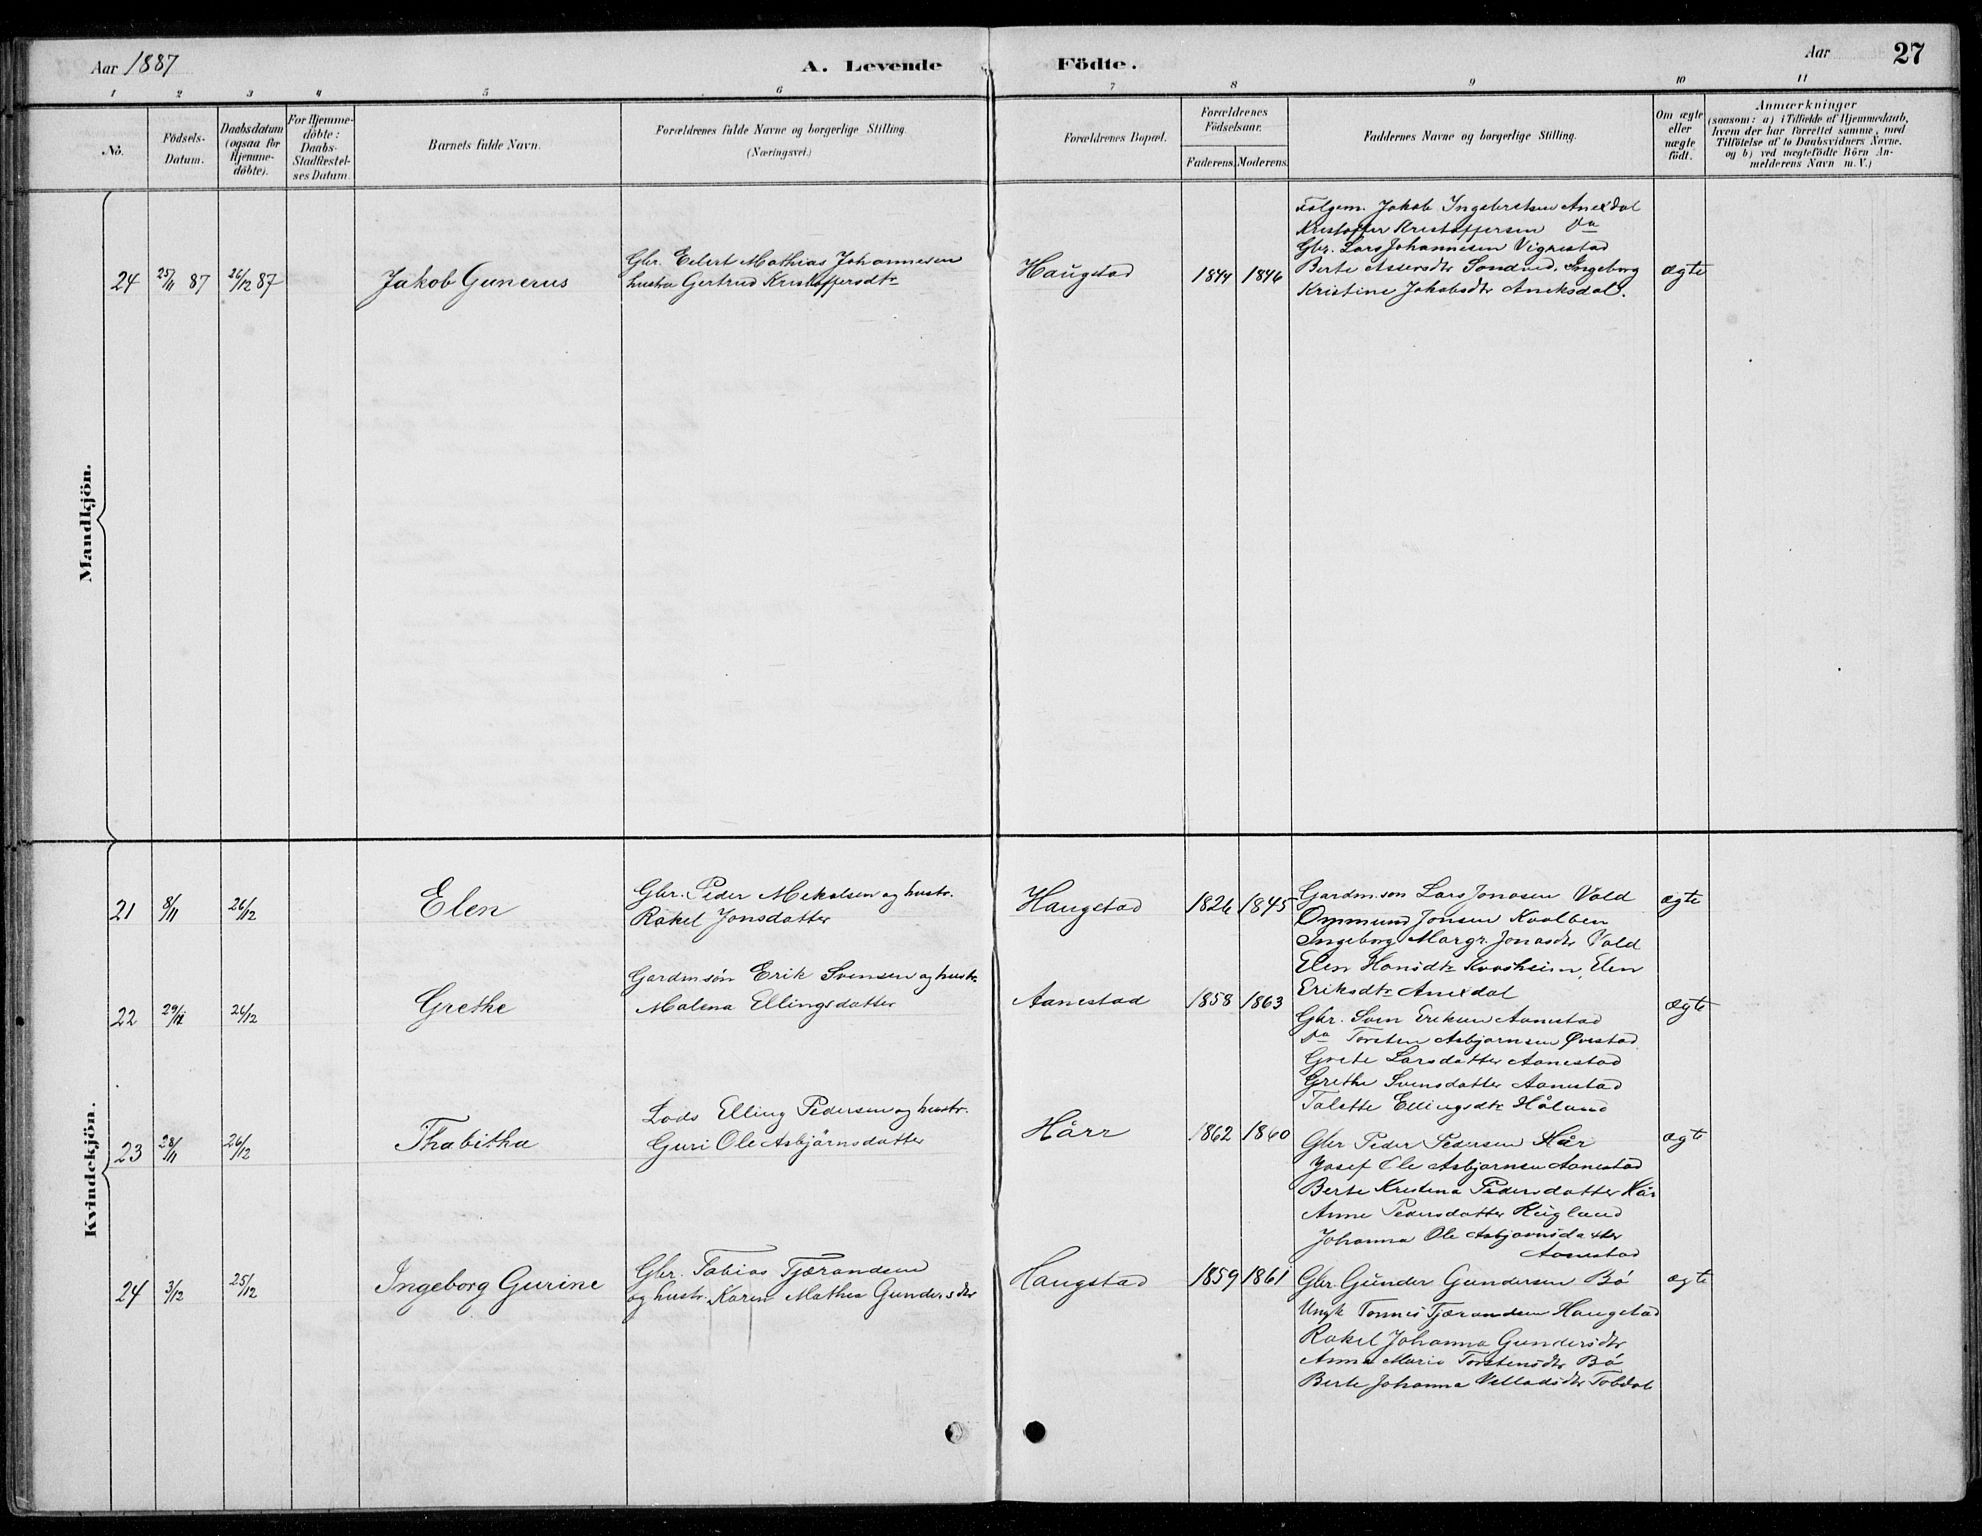 Aar 1887
A. Levende Födte.
Aar
27
1 2 3 4 5 6 7 8 9 10 11
No.
Födsels-
Datum.
Daabsdatum
(ogsaa for
Hjemme-
døbte).
For Hjemme-
döbte:
Daabs-
Stadfæstel-
ses Datum
Barnets fulde Navn.
Forældrenes fulde Navne og borgerlige Stilling.
(Næringsvei.)
Forældrenes Bopæl.
Forældrenes
Födselsaar.
Faderens. Moderens.
Faddernes Navne og borgerlige Stilling.
Om ægte
eller
uægte
födt.
Anmærkninger
(saasom: a) i Tilfælde af Hjemmedaab,
hvem der har forrettet samme, med
Tilföielse af to Daabsvidners Navne.
og b) ved uægtefödte Börn An-
melderens Navn m. V.)
Mandkjön.
24 25/11 87 26/12 87
Jakob Gunerus
Gbr. Eilert Mathias Johannesen
hustru Gertrud Kristoffersdtr
Haugstad
1844 1846
Følgem. Jakob Ingebretsen Anexdal
Kristoffer Kristoffersen do
Gbr. Lars Johannesen Vignestad
Berte Assersdtr Sondved, Ingeborg
Kristine Jakobsdtr Aneksdal.
ægte
Kvindekjön.
21 8/11 26/12
Elen
Gbr. Peder Mekalsen og hustr.
Rakel Jonsdatter
Haugstad
1826 1845
Gardm. søn Lars Jonasen Vold
Ommund Jonsen Kvalben
Ingeborg Margr. Jonasdtr Vold
Elen Hansdtr Kvasheim, Elen
Eriksdtr Anexdal
ægte
22 29/11 26/12
Grethe
Gardmsøn Erik Svensen og hustr.
Malena Ellingsdatter
Aanestad
1858 1863
Gbr. Sven Eriksen Aanestad
do Torsten Asbjørnsen Øvestad
Grete Larsdatter Aanestad
Grethe Svensdatter Aanestad
Talette Ellingsdtr Håland
ægte
23 28/11 26/12
Thabitha
Lods Elling Pedersen og hustr.
Guri Ole Asbjörnsdatter
Hårr
1862 1860
Gbr Peder Pedersen Hår
Josef Ole Asbjornsen Aanestad
Berte Kristina Pedersdatter Hår
Anne Pedersdatter Hugland
Johanna Ole Asbjørnsdatter
Aanestad
ægte
24 3/12 25/12
Ingeborg Gurine
Gbr. Tobias Tjærandsen
og hustr. Karen Mathea Gundersdtr
Haugstad
1859 1861
Gbr. Gunder Gundersen Bø
Ungk Tonnes Tjærandsen Haugstad
Rakel Johanna Gundersdtr
Anna Marie Torstensdtr Bø
Berte Johanna Velladsdtr
ægte